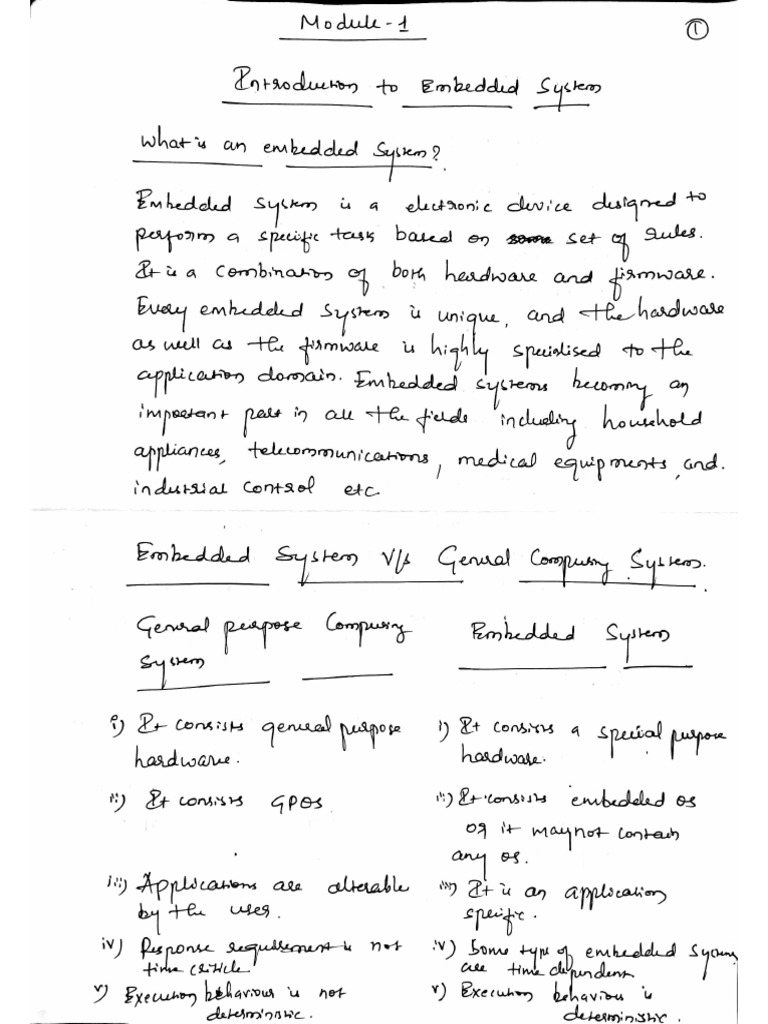 Module-1
1
Introduction to Embedded System
What is an embedded System?
Embedded System is a electronic device designed to
perform a specific task based on some set of rules.
It is a combination of both hardware and firmware.
Every embedded System is unique, and the hardware
as well as the firmware is highly specialised to the
application domain. Embedded systems becoming an
important part in all the fields including household
appliances, telecommunications, medical equipments, and
industrial control etc
Embedded System V/s General Computing System.
General purpose Computing
System
Embedded System
i) It consists general purpose
hardware.
i) It consists a special purpose
hardware.
ii) It consists GPOS
ii) It consists embedded OS
or it may not contain
any os.
iii) Applications are alterable
by the user.
iii) It is an application
specific.
iv) Response requirement is not
time critical
iv) Some type of embedded System
are time dependent
v) Execution behaviour is not
deterministic.
v) Execution behaviour is
deterministic.